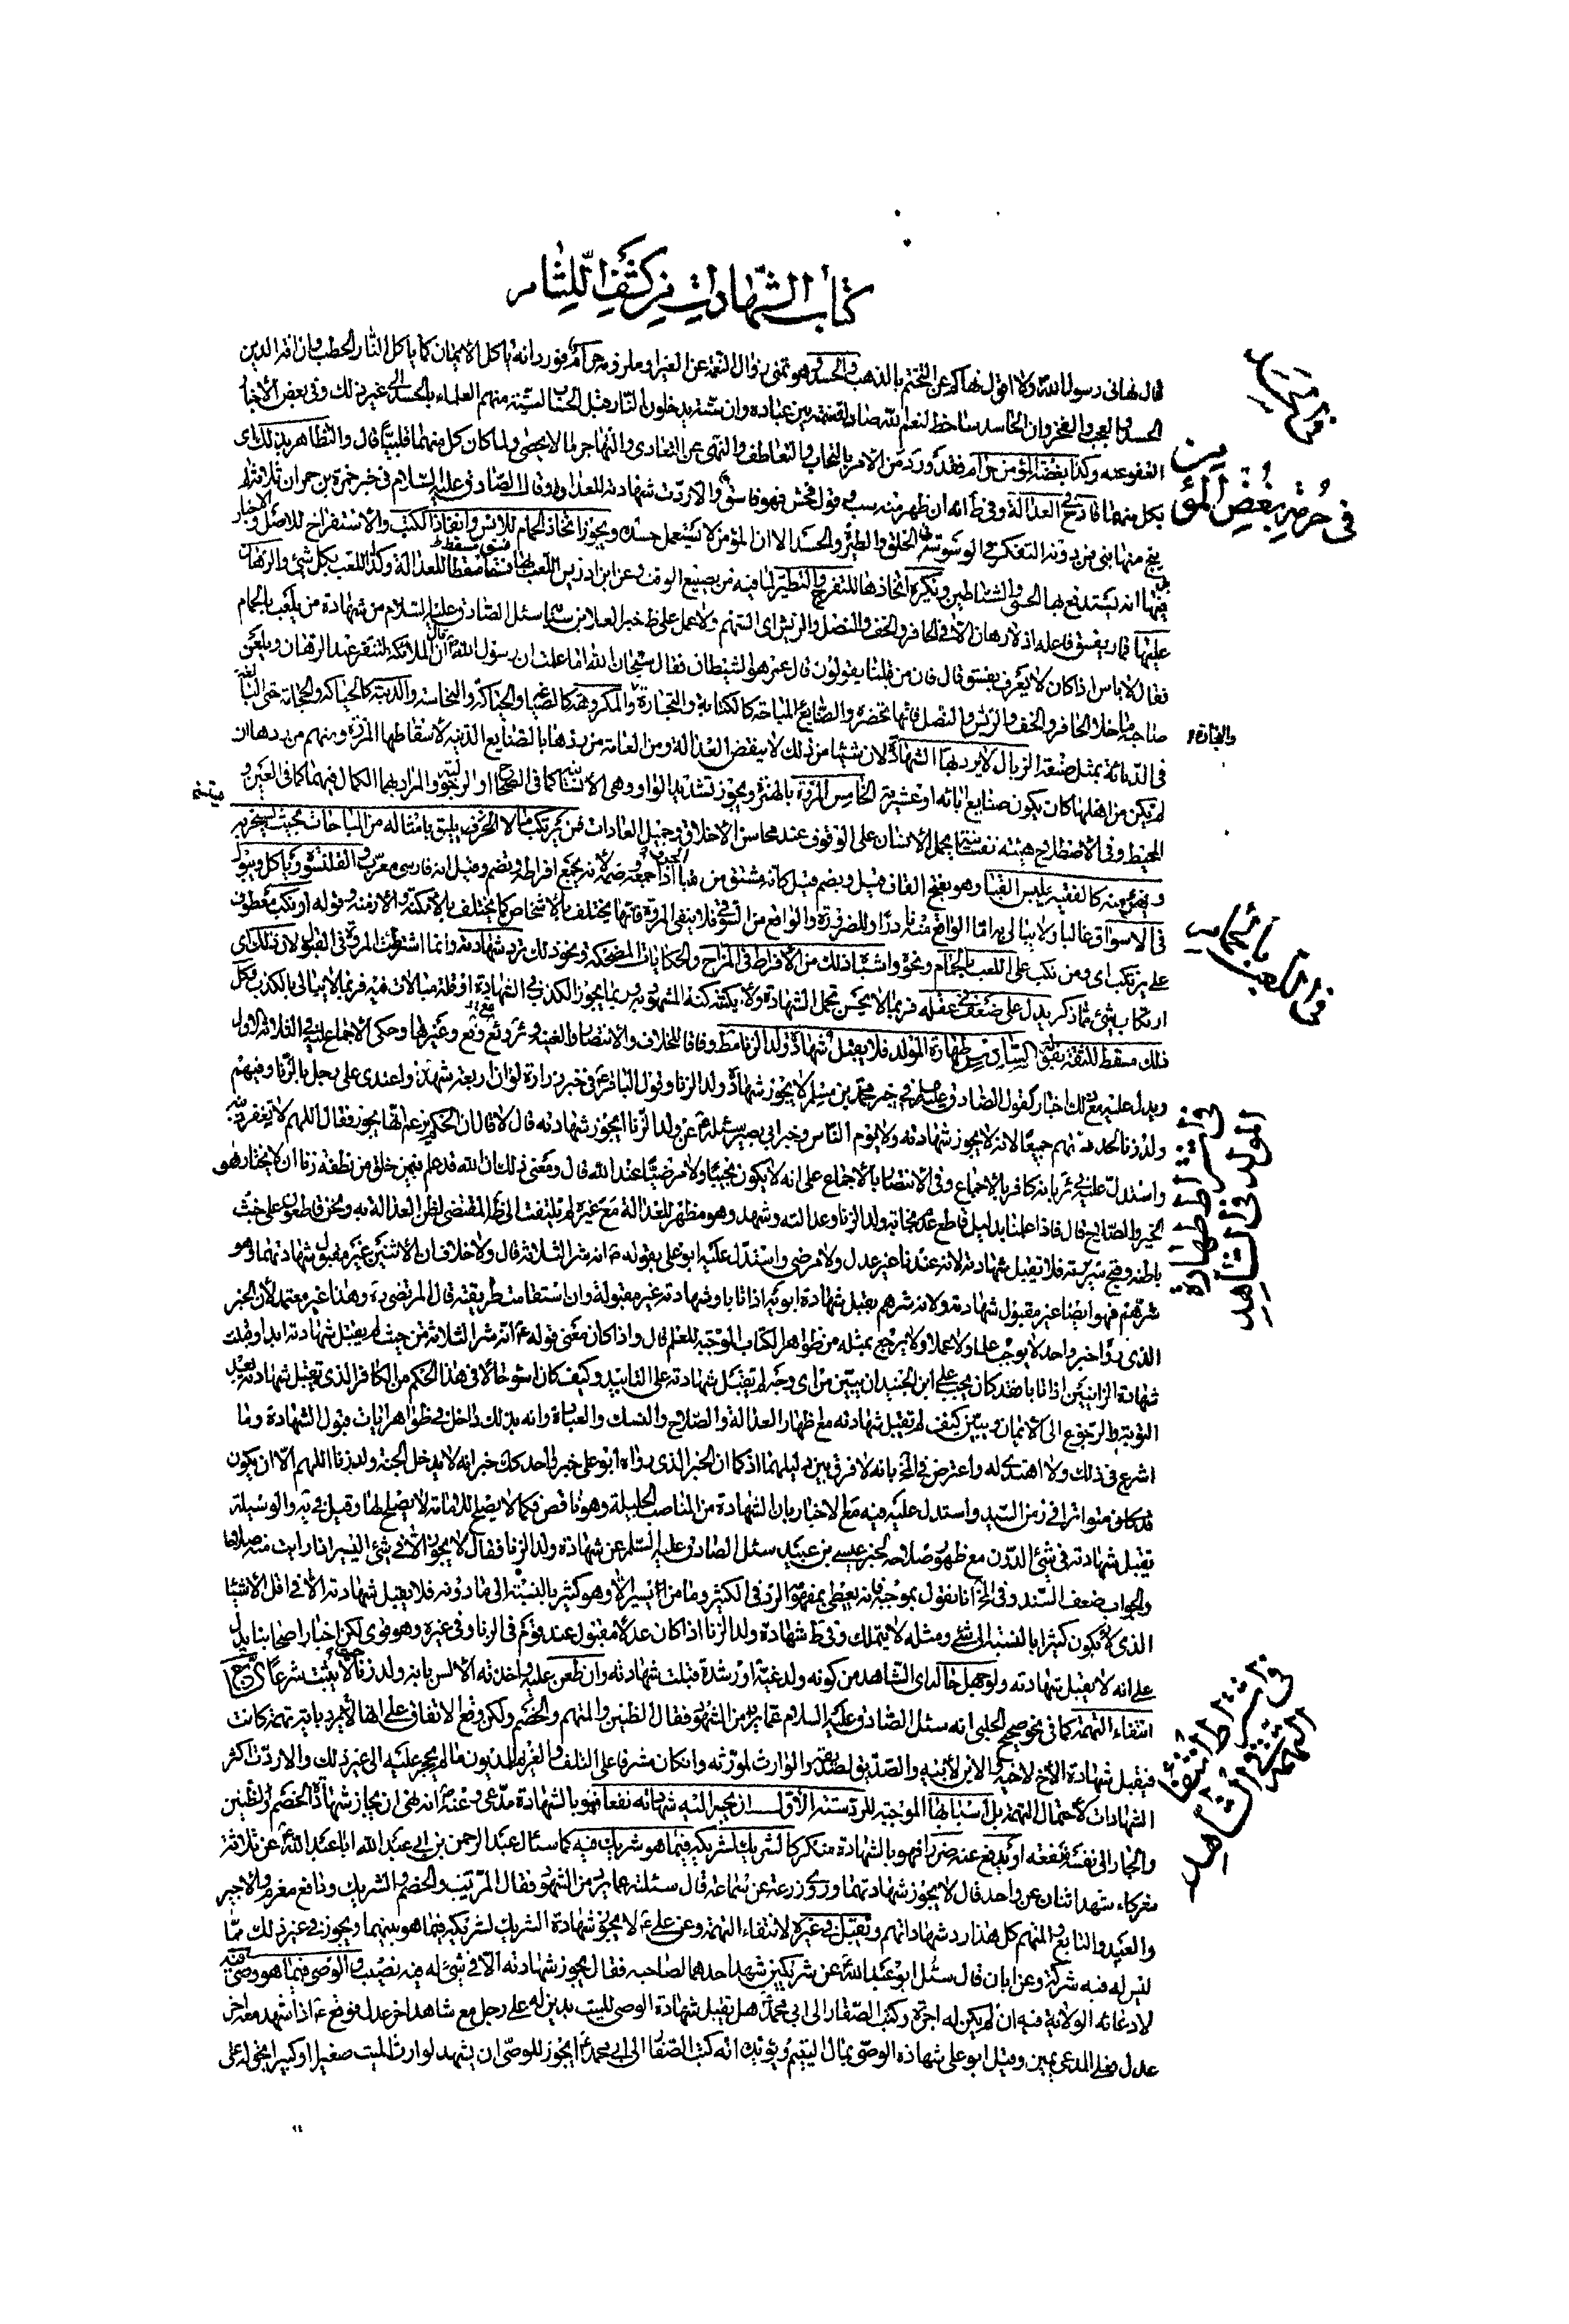 كتاب الشهادات من كشف اللثام
قال نهاني رسول الله ولا اقول نهاكم عن التختم بالذهب والحسد وهو تمنى زوال النعمة عن الغير او ملزومه حرام فورد انه ياكل الأيمان كما ياكل النار الحطب وان افة الدين
الحسد والعجب والفخر وان الحاسد ساخط لنعم الله صاد لقسمته بين عباده وان ستة يدخلون النار قبل الحساب لستة منهم العلماء بالحسد الى غير ذلك وفى بعض الأخبار
العفو عنه وكذا بغضة المؤمن حرام فقد ورد من الأمر بالتحاب والتعاطف والنهى عن التعادى والتهاجر ما لا يحصى ولما كان كل منهما قلبيا قال والتظاهر بذلك اى
بكل منهما قادح فى العدالة وفى ط انه ان ظهر منه سب وقول فحش فهو فاسق والا ردت شهادته للعداوة وقال الصادق عليه السلام فى خبر حمزة بن حمران ثلاثة لم
ينج منها نبى فمن دونه التفكر فى الوسوسة فى الخلق والطيرة والحسد الا ان المؤمن لا يستعمل حسده ويجوز اتخاذ الحمام للانس وانفاذ الكتب والاستفراخ للاصل والاخبار
فيها انه يستدفع بها الجن والشياطين ويكره اتخاذها للتفرج والتطير لما فيه من تضييع الوقت وعن ابن ادريس اللعب بها فسقا مسقطا للعدالة وكذا اللعب بكل شئ والرهان
عليها قمار يفسق فاعله اذ لا رهان الا فى الحافر والخف والنصل والريش اى السهم ولا عمل على ظ خبر العلا بن سيابة سئل الصادق عليه السلام عن شهادة من يلعب بالحمام
فقال لا باس اذا كان لا يعرف بفسق قال فان من قبلنا يقولون قال عمر هو الشيطان فقال سبحان الله اما علمت ان رسول الله قال ان الملائكة لتنفر عند الرهان وتلعن
صاحبه ما خلا الحافر والخف والريش والنصل فانها تحضره والصنايع المباحة كالكتابة والتجارة والمكروهة كالصياغة والحياكة والنخاسة والدنية كالحياكة والحجامة حتى البالغة
فى الدنائة بمثل صنعة الزبال لا يرد بها الشهادة لان شيئا من ذلك لا ينقض العدالة ومن العامة من ردها بالصنايع الدنية لاسقاطها المروة ومنهم من ردها ان
لم يكن من اهلها كان يكون صنايع ابائه او عشيرته الخامس المروة بالهمزة ويجوز تشديد الواو وهى الأنسانية كما فى الصحاح او الرجولية والمراد بهما الكمال فيهما كما فى العين و
المحيط وفى الاصطلاح هيئة نفسانية تحمل الأنسان على الوقوف عند محاسن الأخلاق وجميل العادات فمن يرتكب ما لا يليق بامثاله من المباحات بحيث يسخر به
ويهزء منه كالفقيه يلبس القبا وهو بفتح القاف قيل ويضم قيل كانه مشتق من قبا اذا جمعه وضمه لانه يجمع اطرافه ويضم وقيل انه فارسى معرب والقلنسوة وياكل ويبول
فى الاسواق غالبا ولا يبالى به اما الواقع منه نادرا وللضرورة والواقع من السوقى فلا ينفى المروة فانها يختلف بالاشخاص كما يختلف بالامكنة والازمنة وقوله او نكب معطوف
على يرتكب اى ومن نكب على اللعب بالحمام ونحوه واشباه ذلك من الأفراط فى المزاح والحكايات المضحكة ونحو ذلك ترد شهادته وانما اشترطت المروة فى القبول لان ذلك اى
ارتكاب شئ مما ذكر يدل على ضعف فى عقله فربما لا يحسن تحمل الشهادة ولا يكشف كنه المشهود به وربما يجوز الكذب فى الشهادة او قلة مبالات فيه فربما لا يبالى بالكذب فكل
ذلك مسقط للثقة بقوله السادس طهارة المولد فلا يقبل شهادة ولد الزنا مط وفاقا للخلاف والانتصار والغنية وئر ويع وفع وغيرها وحكى الاجماع عليه فى الثلاثة الاول
ويدل عليه مع ذلك اخبار كقول الصادق عليه السلام فى خبر محمد بن مسلم لا يجوز شهادة ولد الزنا وقول الباقر ع فى خبر زرارة لو ان اربعة شهدوا عندى على رجل بالزنا وفيهم
ولد زنا لحددتهم جميعا لانه لا يجوز شهادته ولا يؤم الناس وخبر ابى بصير سئله ع عن ولد الزنا ايجوز شهادته قال لا قال ان الحكم يزعم انها يجوز فقال اللهم لا تغفر ذنبه
واستدل عليه فى ئر بانه كافر بالاجماع وفى الانتصار بالأجماع على انه لا يكون نجيبا ولا مرضيا عند الله قال ومعنى ذلك ان الله قد علم فيمن خلق من نطفة زنا ان لا يختار هو
الخير والصلاح قال فاذا علمنا بدليل قاطع عدم نجابة ولد الزنا وعدالته وشهد وهو مظهر للعدالة مع غيره لم يلتفت الى ظ المقتضى لظن العدالة به ونحن قاطعون على خبث
باطنه وقبح سريرته فلا تقبل شهادته لانه عندنا غير عدل ولا مرضى واستدل عليه ابو على بقوله ص انه شر الثلاثة قال ولا خلاف ان الاثنين غير مقبول شهادتهما وهو
شرهم فهو ايضا غير مقبول شهادته ولانه شرهم يقبل شهادة ابويه اذا تابا وشهادته غير مقبولة وان استقامت طريقته قال المرتضى ره وهذا غير معتمد لأن الخبر
الذى رواه خبر واحد لا يوجب علما ولا عملا ولا يرجع بمثله عن ظواهر الكتاب الموجبة للعلم قال واذا كان معنى قوله ع انه شر الثلاثة من حيث لم يقبل شهادته ابدا وقبلت
شهادة الزانيين اذا تابا فقد كان يجب على ابن الجنيد ان يبين من اى وجه لم تقبل شهادته على التابيد وكيف كان اسوء حالا فى هذا الحكم من الكافر الذى تقبل شهادته بعد
التوبة والرجوع الى الأيمان ويبين كيف لم تقبل شهادته مع اظهار العدالة والصلاح والنسك والعبادة وانه بذلك داخل فى ظواهر ايات قبول الشهادة وما
اشرع فى ذلك ولا اهتدى له واعترض فى المخ بانه لا فرق بين دليليهما اذ كما ان الخبر الذى رواه ابو على خبر واحد كك خبر انه لا يدخل الجنة ولد زنا اللهم الا ان يكون
قد كان متواترا فى زمن السيد واستدل عليه فيه مع الاخبار بان الشهادة من المناصب الجليلة وهو ناقص فكما لا يصلح للامامة لا يصلح لها وقيل فى يه والوسيلة
تقبل شهادته فى شئ الدون مع ظهور صلاحه لخبر عيسى بن عبد الله سئل الصادق عليه السلم عن شهادة ولد الزنا فقال لا يجوز الا فى شئ اليسير اذا رايت منه صلاحا
والجواب ضعف السند وفى المخ انا نقول بموجبه فانه يعطى بمفهومه الرد فى الكثير وما من يسير الا وهو كثير بالنسبة الى ما دونه فلا يقبل شهادته الا فى اقل الاشياء
الذى لا يكون كثيرا بالنسبة الى شئ ومثله لا يتملك وفى ط شهادة ولد الزنا اذا كان عدلا مقبول عند قوم فى الزنا وفى غيره وهو قوى لكن اخبار اصحابنا يدل
على انه لا يقبل شهادته ولو جهل حاله اى الشاهد من كونه ولد غية او رشدة قبلت شهادته وان طعن عليه واخذته الألسن بانه ولد زنا لا يثبت شرعا
انتفاء التهمة كما فى نحو صحيح الحلبى انه سئل الصادق عليه السلام عما يرد من الشهود فقال الظنين والمتهم والخصم ولكن وقع الاتفاق على انها لا يرد باية تهمة كانت
فيقبل شهادة الأخ لاخيه والابن لأبيه والصديق لصديقه والوارث لمورثه وان كان مشرفا على التلف والغريم للمديون ما لم يحجر عليه الى غير ذلك والا ردت اكثر
الشهادات لأحتمال التهمة بل اسبابها الموجبة للرد ستة الأول ان يجر اليه شهادته نفعا فهو بالشهادة مدعى وعنه ص انه نهى ان يجاز شهادة الخصم والظنين
والجار الى نفسه منفعة او يدفع عنه ضررا فهو بالشهادة منكر كالشريك لشريكه فيما هو شريك فيه كما سئل عبد الرحمن بن ابى عبد الله ابا عبد الله ع عن ثلاثة
شركاء شهد اثنان عن واحد قال لا يجوز شهادتهما وروى زرعة عن سماعة قال سئلته عما يرد من الشهود فقال المريب والخصم والشريك ودافع مغرم والاجير
والعبد والتابع والمتهم كل هذا رد شهاداتهم وتقبل فى غيره لانتفاء التهمة وعن على ع لا يجوز شهادة الشريك لشريكه فيما هو بينهما ويجوز فى غير ذلك مما
ليس له فيه شركة وعن ابان قال سئل ابو عبد الله ع عن شريكين شهد احدهما لصاحبه فقال يجوز شهادته الا فى شئ له فيه نصيب والوصى فيما هو وصى فيه
لادعائه الولاية فيه ان لم يكن له اجرة وكتب الصفار الى ابى محمد ع هل تقبل شهادة الوصى للميت بدين له على رجل مع شاهد اخر عدل فوقع ع اذا شهد معه اخر
عدل فعلى المدعى يمين وقبل ابو على شهادة الوصى بمال اليتيم ويؤيده انه كتب الصفار الى ابى محمد ع ايجوز للوصى ان يشهد لوارث الميت صغيرا او كبيرا بحق له على
فى الحسد
فى حرمة بغض المؤمن
والتجارة
فى اللعب بالحمام
فى اشتراط طهارة المولد فى الشاهد
فى اشتراط انتفاء التهمة فى الشاهد